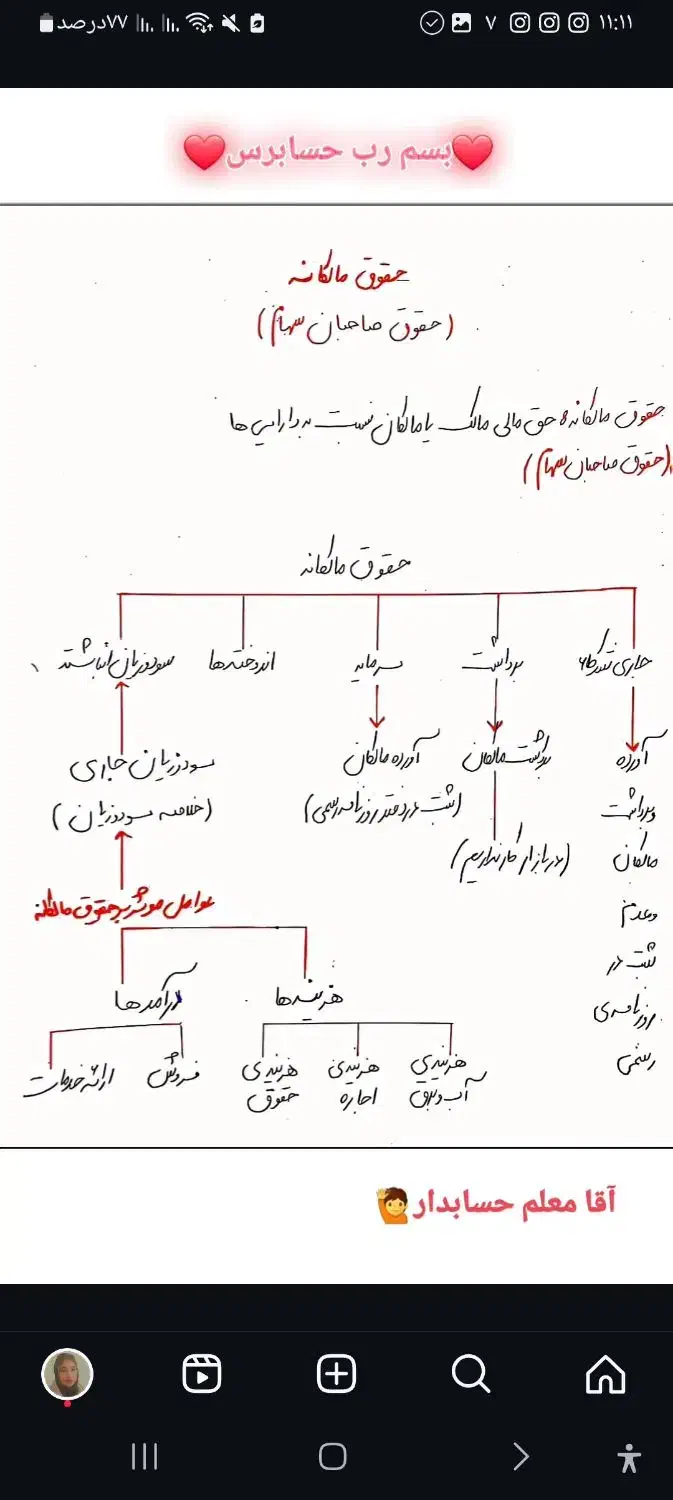 ۷۷درصد
۷
۱۱:۱۱
بسم رب حسابرس
حقوق مالکانه
(حقوق صاحبان سهام)
حقوق مالکانه: حق مالی مالک یا مالکان نسبت به دارایی ها
(حقوق صاحبان سهام)
حقوق مالکانه
جاری شرکاء
برداشت
سرمایه
اندوخته ها
سود و زیان انباشته
آورده
و برداشت
مالکان
و عدم
ثبت در
روزنامه ی
رسمی
برداشت مالکان
(در بازار کار نداریم)
آورده مالکان
(ثبت در دفتر روزنامه رسمی)
سود و زیان جاری
(خلاصه سود و زیان)
عوامل موثر بر حقوق مالکانه
هزینه ها
درآمدها
هزینه ی آب و برق
هزینه ی اجاره
هزینه ی حقوق
فروش
ارائه خدمات
آقا معلم حسابدار